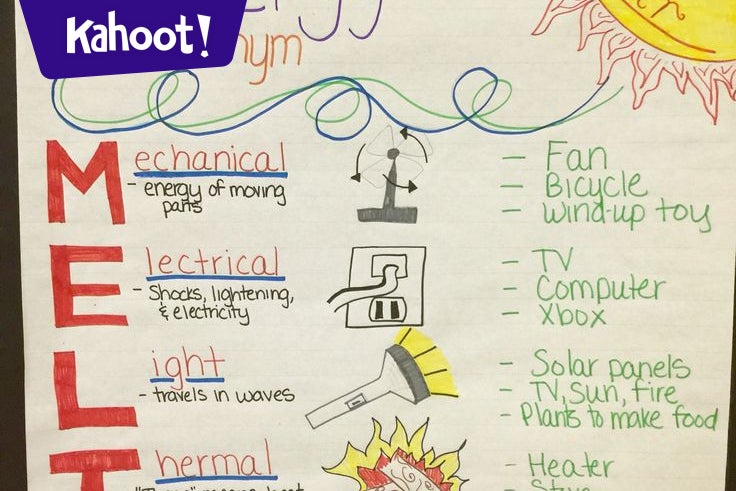 Kahoot!
Mechanical
- energy of moving
parts
- Fan
- Bicycle
- Wind-up toy
Electrical
- Shocks, lightening,
& electricity
- TV
- Computer
- Xbox
Light
- travels in waves
- Solar panels
- TV, Sun, fire
- Plants to make food
Thermal
- Heater